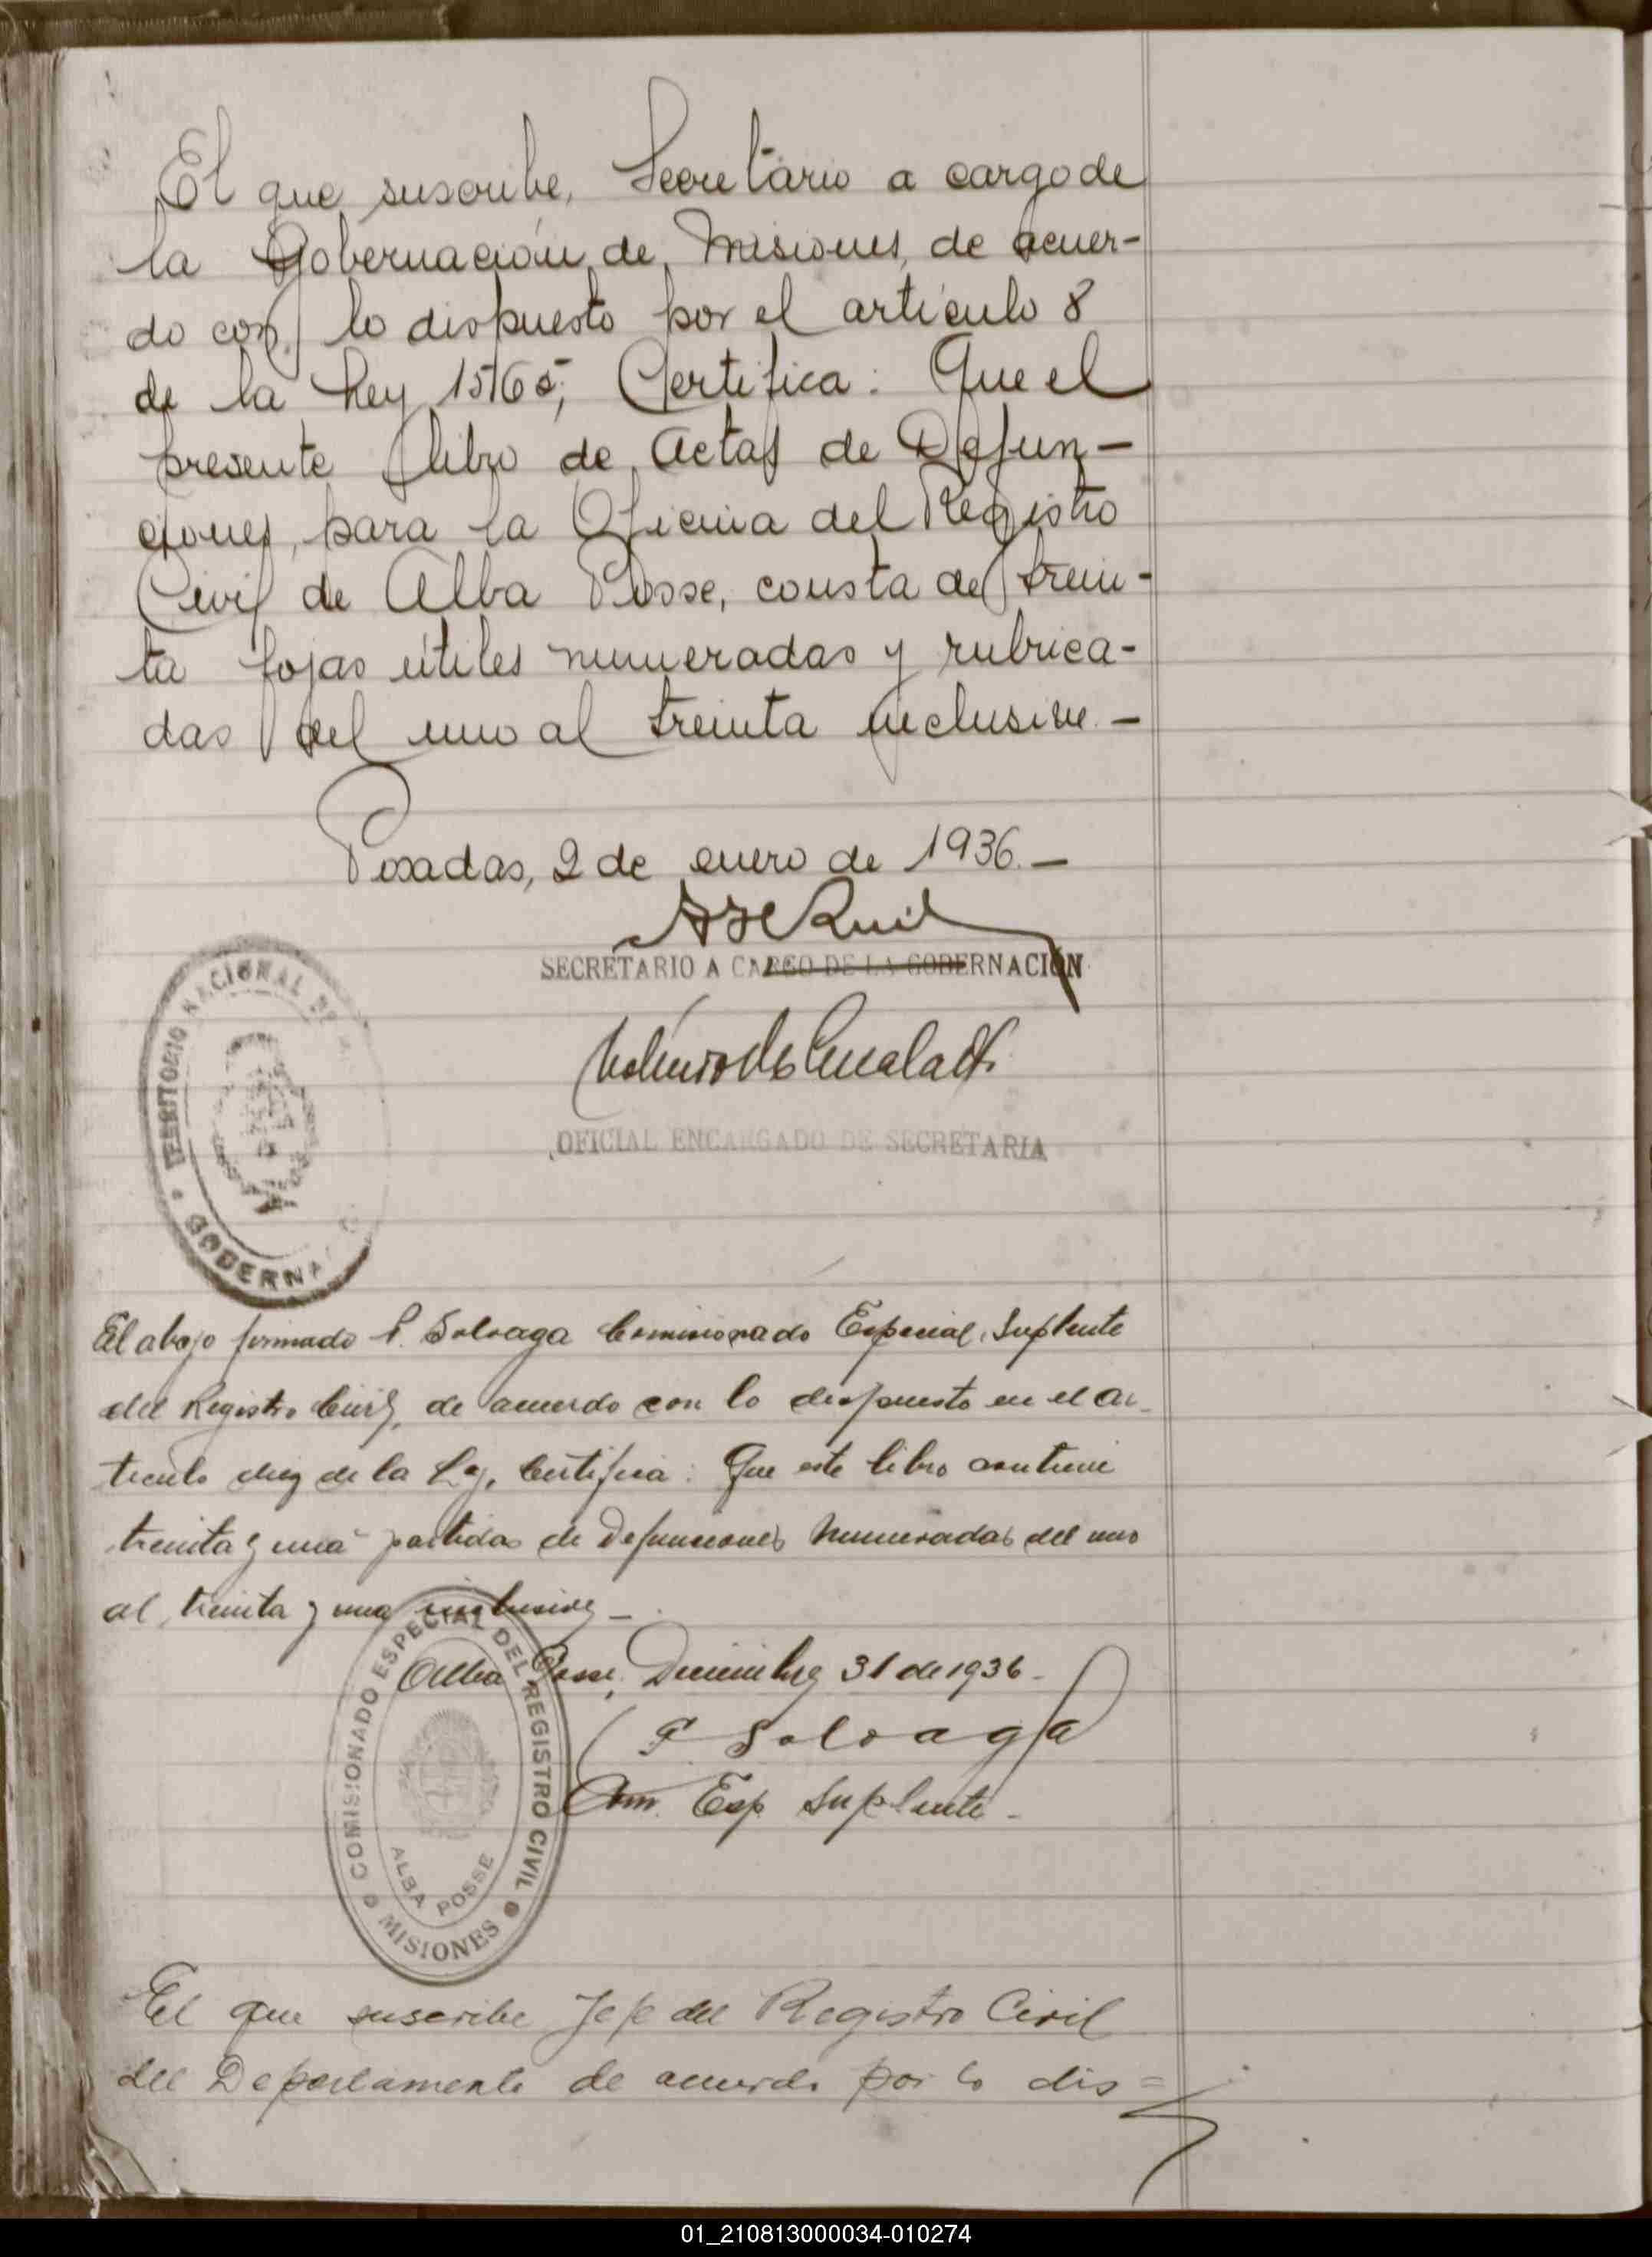 El que suscribe, Secretario a cargo de
la Gobernación de Misiones, de acuer-
do con lo dispuesto por el artículo 8
de la Ley 1565, Certifica: Que el
presente libro de Actas de Defun-
ciones, para la Oficina del Registro
Civil de Alba Posse, consta de trein-
ta fojas útiles numeradas y rubrica-
das del uno al treinta inclusive.-
Posadas, 2 de enero de 1936.-
SECRETARIO A CARGO DE LA GOBERNACIÓN
OFICIAL ENCARGADO DE SECRETARIA
TERRITORIO NACIONAL DE
GOBERNA
El abajo firmado P. Soloaga Comisionado Especial Suplente
del Registro Civil, de acuerdo con lo dispuesto en el ar-
ticulo diez de la Ley, Certifica: Que este libro contiene
treinta y una partidas de Defunciones numeradas del uno
al treinta y una inclusive-
Alba Posse, Diciembre 31 de 1936-
P Soloaga
Com. Esp. Suplente-
COMISIONADO ESPECIAL DEL REGISTRO CIVIL
ALBA POSSE
MISIONES
El que suscribe Jefe del Registro Civil
del Departamento de acuerdo por lo dis=
01_210813000034-010274